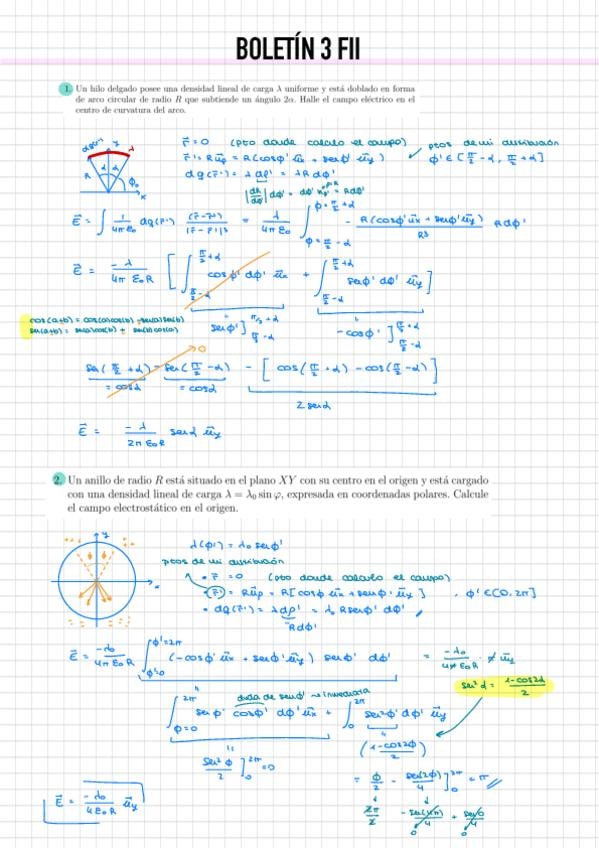 BOLETÍN 3 FII
1. Un hilo delgado posee una densidad lineal de carga λ uniforme y está doblado en forma
de arco circular de radio R que subtiende un ángulo 2α. Halle el campo eléctrico en el
centro de curvatura del arco.
r⃗ = 0 (pto donde calculo el campo)
ptos de mi distribución
r⃗' = R u⃗ρ = R(cosϕ' u⃗x + senϕ' u⃗y) ϕ' ∈ [π/2 - α, π/2 + α]
dq(r⃗') = λ dl' = λR dϕ'
E⃗ = ∫ 1/4πε₀ dq(r⃗') (r⃗ - r⃗')/|r⃗ - r⃗'|³ = λ/4πε₀ ∫ ϕ=π/2+α ϕ=π/2-α - R(cosϕ' u⃗x + senϕ' u⃗y)/R³ R dϕ'
E⃗ = -λ/4πε₀R [∫ π/2+α π/2-α cosϕ' dϕ' u⃗x + ∫ π/2+α π/2-α senϕ' dϕ' u⃗y]
cos(a+b) = cos(a)cos(b) - sen(a)sen(b)
sen(a+b) = sen(a)cos(b) + sen(b)cos(a)
senϕ' ] π/2+α π/2-α - cosϕ' ] π/2+α π/2-α
0
sen(π/2 + α) - sen(π/2 - α) - [cos(π/2 + α) - cos(π/2 - α)]
= cosα = cosα
2 senα
E⃗ = -λ/2πε₀R senα u⃗y
2. Un anillo de radio R está situado en el plano XY con su centro en el origen y está cargado
con una densidad lineal de carga λ = λ₀ sin φ, expresada en coordenadas polares. Calcule
el campo electrostático en el origen.
λ(ϕ') = λ₀ senϕ'
ptos de mi distribución
• r⃗ = 0 (pto donde calculo el campo)
• r⃗' = R u⃗ρ = R[cosϕ' u⃗x + senϕ' u⃗y], ϕ' ∈ [0, 2π]
• dq(r⃗') = λ dl' = λ₀ R senϕ' dϕ'
R dϕ'
E⃗ = -λ₀/4πε₀R ∫ ϕ'=2π ϕ'=0 (-cosϕ' u⃗x + senϕ' u⃗y) senϕ' dϕ' = -λ₀/4πε₀R π u⃗y
sen²α = 1-cos2α/2
duda de senϕ' → inmediata
∫ 2π ϕ=0 senϕ' cosϕ' dϕ' u⃗x + ∫ 2π 0 sen²ϕ' dϕ' u⃗y
(1-cos2ϕ/2)
sen²ϕ/2 ] 2π 0 = 0
= ϕ/2 - sen(2ϕ)/4 ] 2π 0 = π
2π/2 - sen(4π)/4 + sen0/4
0 0
E⃗ = -λ₀/4ε₀R u⃗y